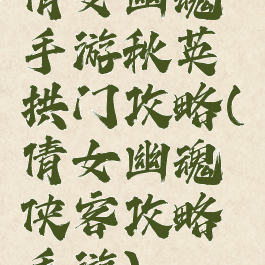 倩女幽魂
手游秋英
拱门攻略(
倩女幽魂
侠客攻略
手游)